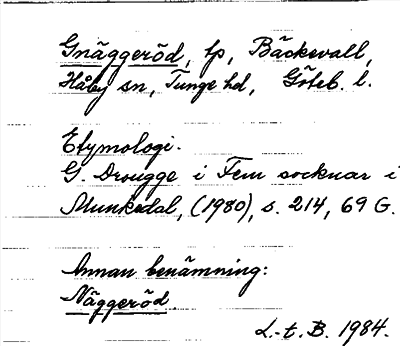 Gnäggeröd, tp, Bäckevall,
Håby sn, Tunge hd, Göteb. l.
Etymologi.
G. Drougge i Fem socknar i
Munkedal, (1980), s. 214, 69 G.
Annan benämning:
Näggeröd
L.-t. B. 1984.